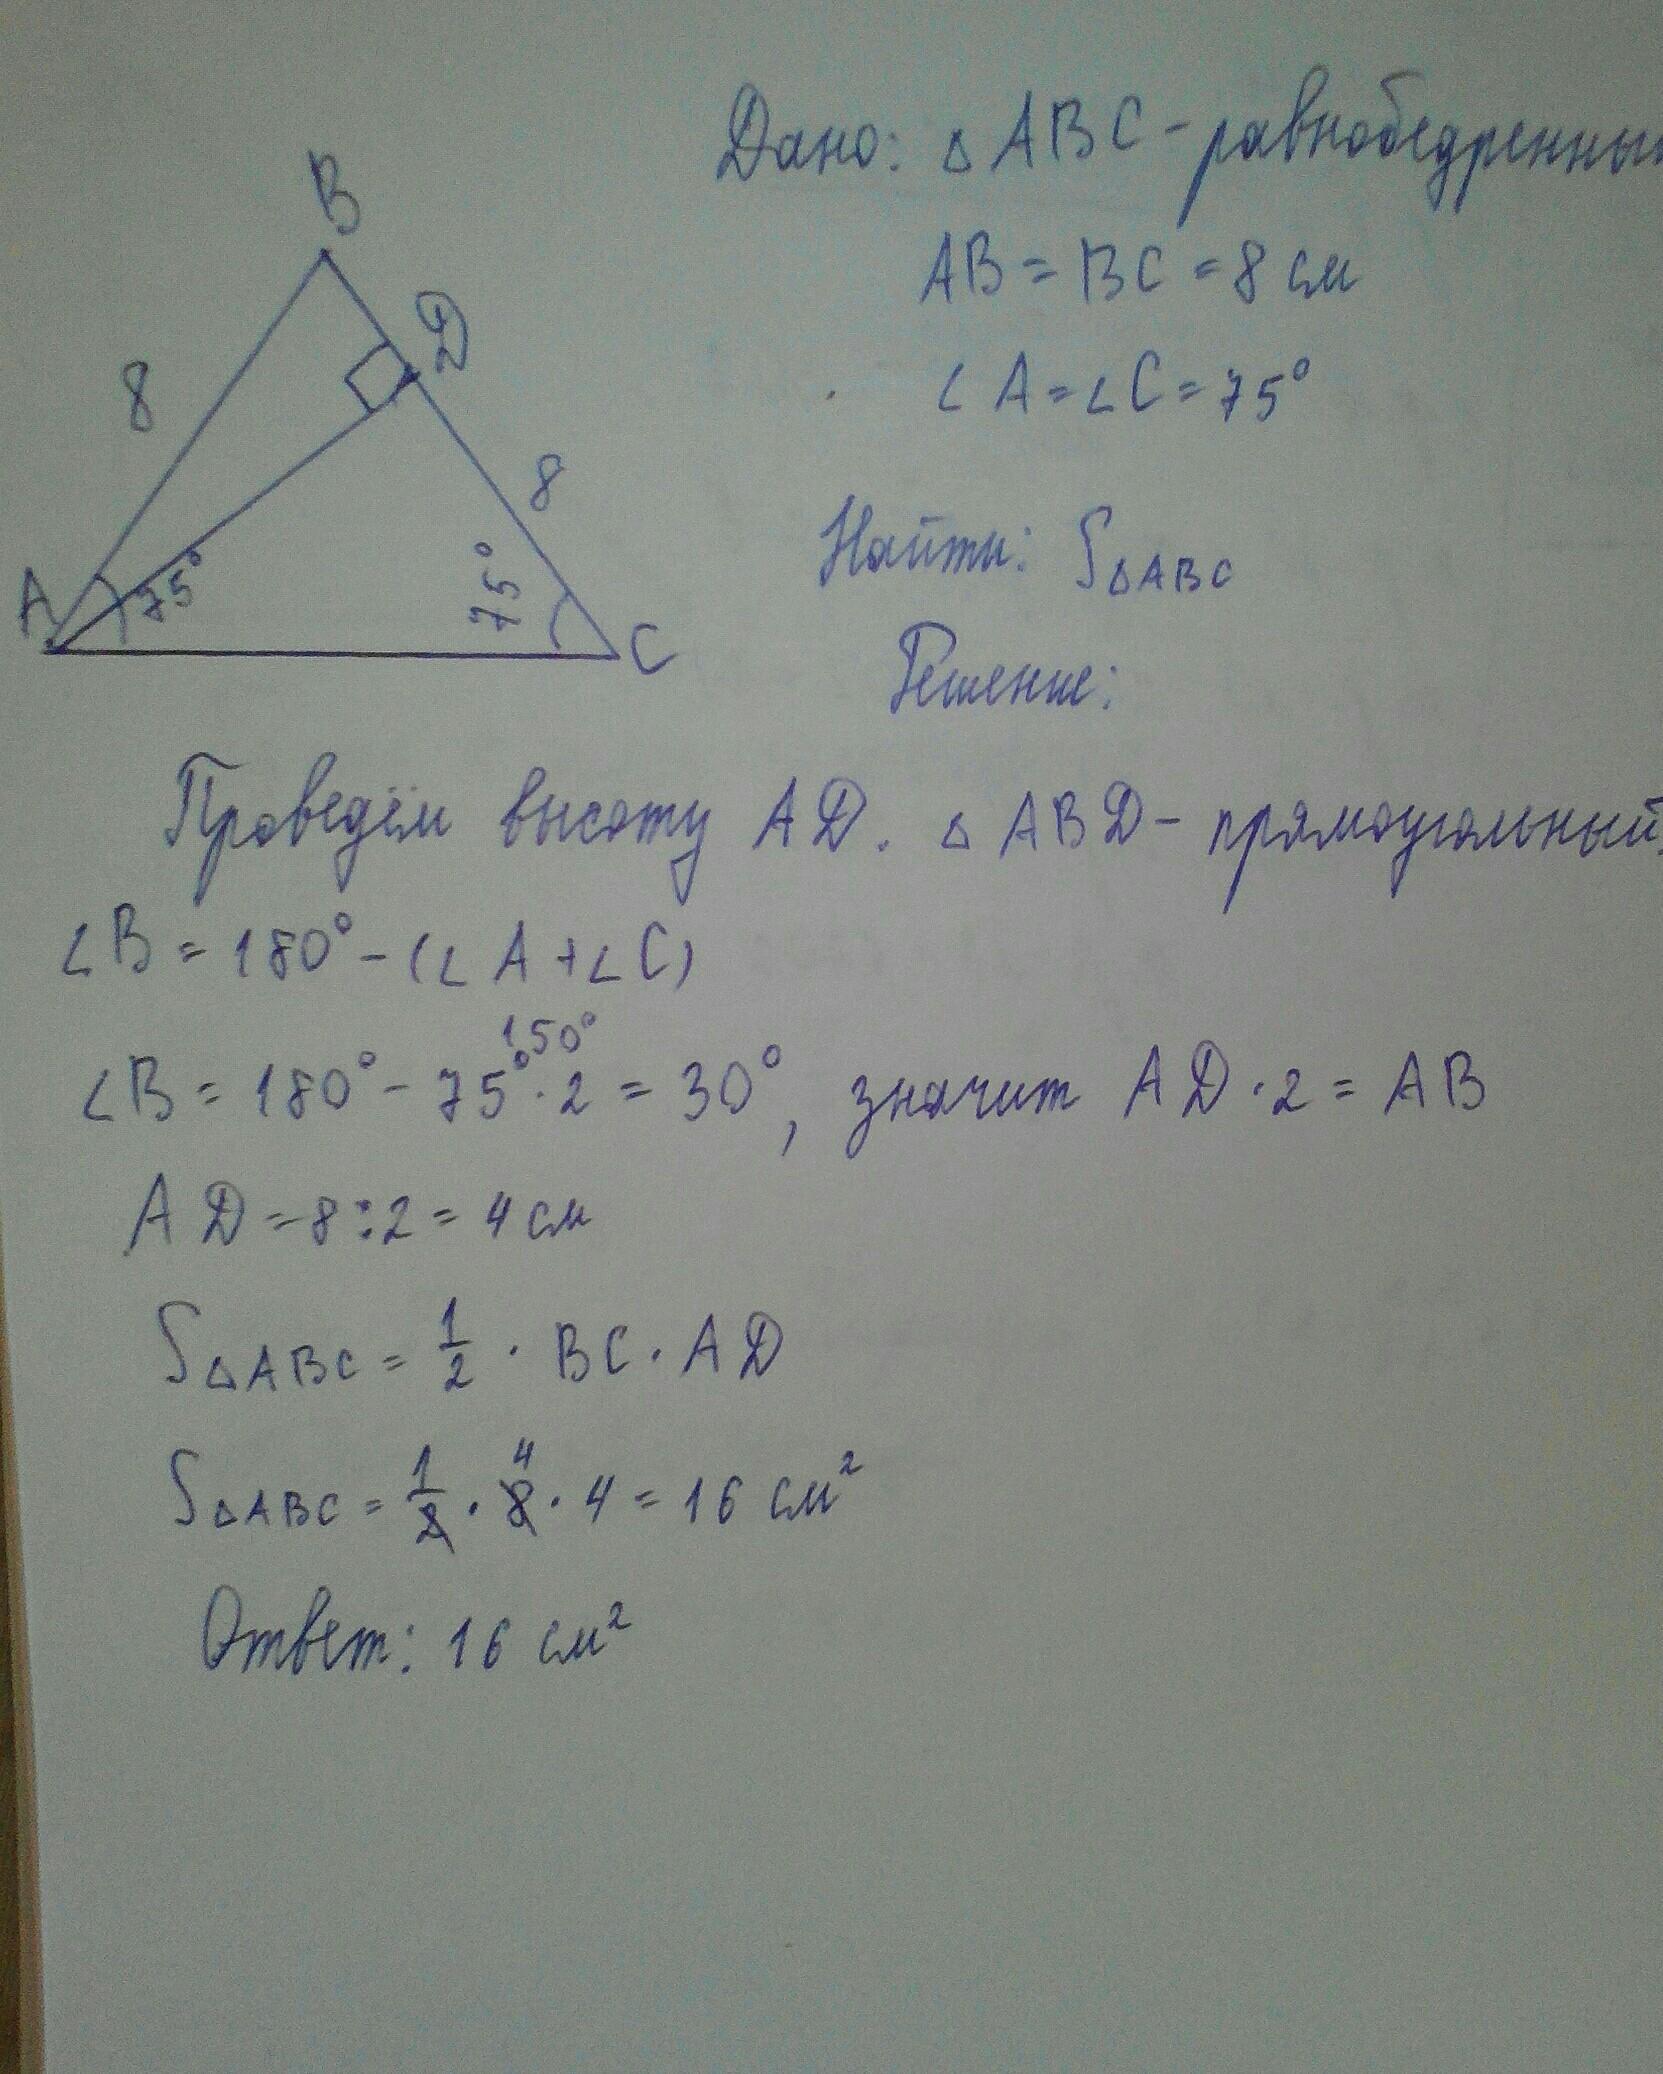 B
D
8
8
A
75°
75°
C
Дано: △ABC - равнобедренный
AB = BC = 8 см
∠A = ∠C = 75°
Найти: S△ABC
Решение:
Проведём высоту AD. △ABD - прямоугольный.
∠B = 180° - (∠A + ∠C)
150°
∠B = 180° - 75° · 2 = 30°, значит AD · 2 = AB
AD = 8 : 2 = 4 см
S△ABC = 1/2 · BC · AD
4
S△ABC = 1/2 · 8 · 4 = 16 см²
Ответ: 16 см²